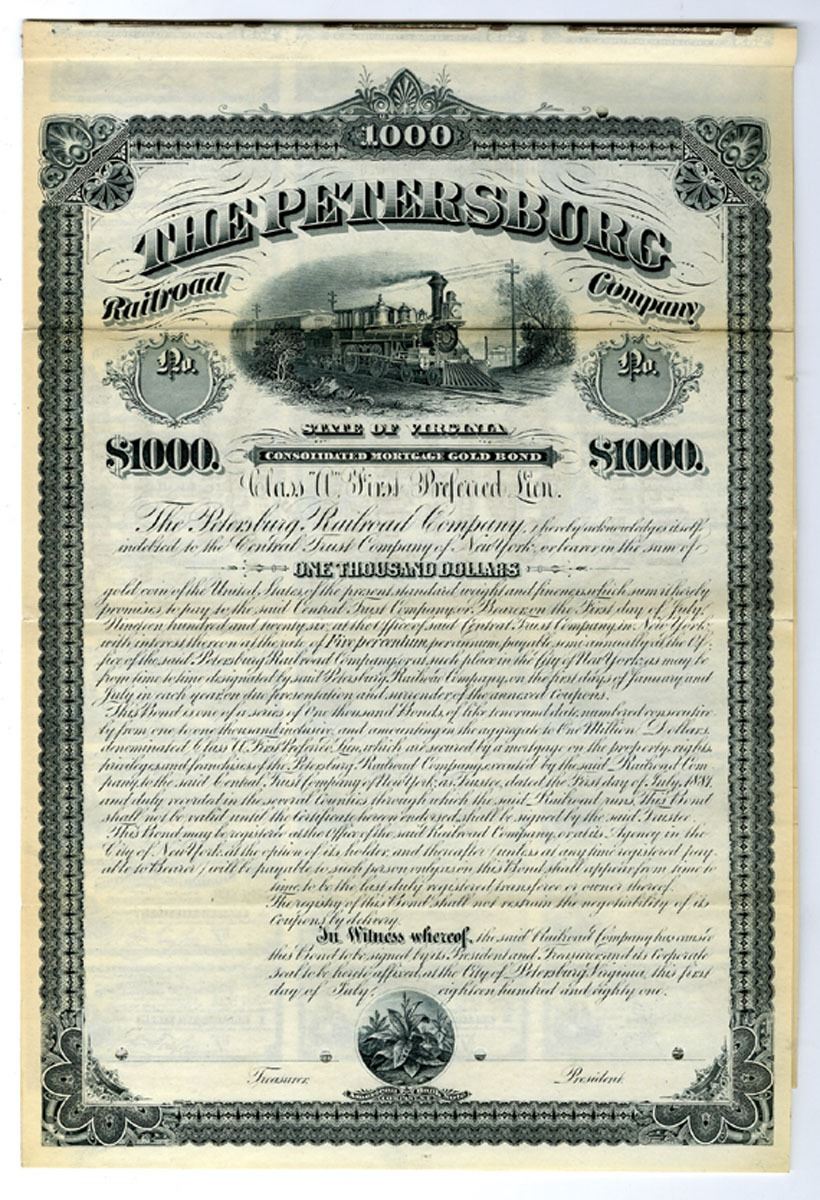 1000
THE PETERSBURG
Railroad Company
No. No.
STATE OF VIRGINIA
$1000. CONSOLIDATED MORTGAGE GOLD BOND $1000.
Class "A" First Preferred Lien.
The Petersburg Railroad Company, hereby acknowledges itself
indebted to the Central Trust Company of New York, or bearer in the sum of
ONE THOUSAND DOLLARS
gold coin of the United States, of the present standard weight and fineness, which sum it hereby
promises to pay to the said Central Trust Company, or Bearer, on the First day of July,
Nineteen hundred and twenty six, at the Office of said Central Trust Company in New York,
with interest thereon at the rate of Five per centum, per annum, payable semi-annually at the Of-
fice of the said Petersburg Railroad Company, or at such place in the City of New York, as may be
from time to time designated by said Petersburg Railroad Company, on the first days of January and
July in each year, on due presentation and surrender of the annexed Coupons.
This Bond is one of a series of One thousand Bonds, of like tenor and date, numbered consecutive-
ly from one to one thousand inclusive, and amounting in the aggregate to One Million Dollars,
denominated Class A, First Preferred Lien, which are secured by a mortgage on the property, rights,
privileges and franchises of the Petersburg Railroad Company, executed by the said Railroad Com-
pany, to the said Central Trust Company of New York, as Trustee, dated the First day of July, 1881,
and duly recorded in the several Counties through which the said Railroad runs. This Bond
shall not be valid until the Certificate hereon endorsed shall be signed by the said Trustee.
This Bond may be registered at the Office of the said Railroad Company, or at its Agency in the
City of New York, at the option of its holder, and thereafter (unless at any time registered pay-
able to Bearer) will be payable to such person only as on this Bond shall appear from time to
time, to be the last duly registered transferee or owner thereof.
The registry of this Bond shall not restrain the negotiability of its
Coupons by delivery.
In Witness whereof, the said Railroad Company has caused
this Bond to be signed by its President and Treasurer and its Corporate
Seal to be hereto affixed, at the City of Petersburg, Virginia, this first
day of July, eighteen hundred and eighty one.
Treasurer. President.